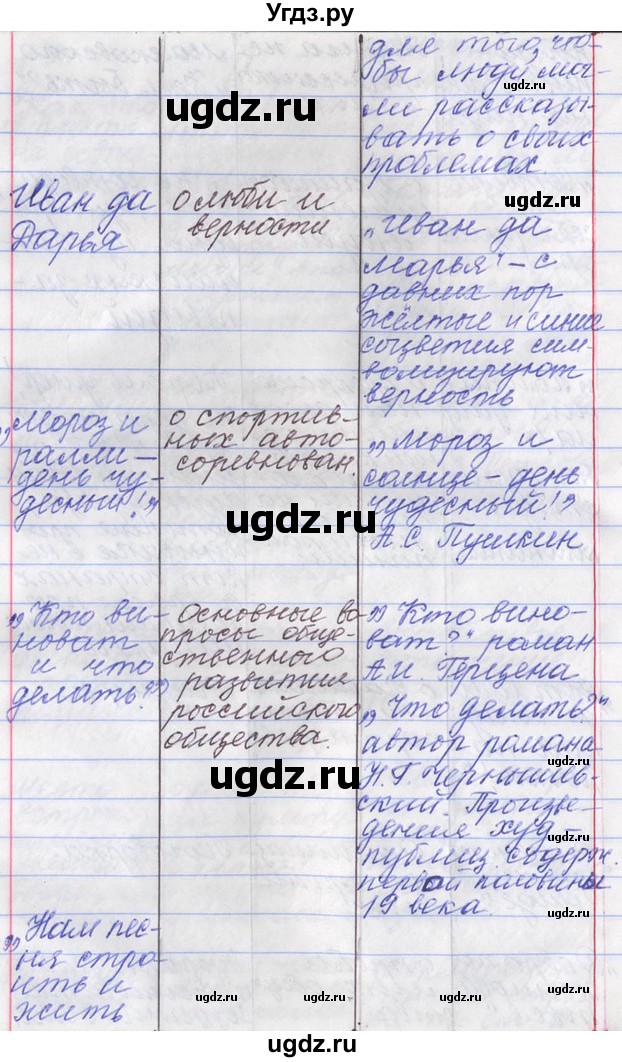 Угдз.ру
для того, что-
бы люди мог-
ли рассказы-
вать о своих
проблемах.
Иван да
Дарья
о люби и
верности
„Иван да
Марья" – с
давних пор
жёлтые и синие
соцветия сим-
волизируют
верность
„Мороз и
ралли –
день чу-
десный!"
о спортив-
ных авто-
соревнован.
„Мороз и
солнце – день
чудесный!"
А.С. Пушкин
„Кто ви-
новат
и что
делать?"
Основные во-
просы обще-
ственного
развития
российского
общества.
„Кто вино-
ват?" роман
А.И. Герцена
„Что делать?"
автор романа
Н.Г. Чернышев-
ский. Произве-
дения худ –
публиц. содерж.
первой половины
19 века
„Нам пес-
ня стро-
ить и
жить
ugdz.ru
ugdz.ru
ugdz.ru
ugdz.ru
ugdz.ru
ugdz.ru
ugdz.ru
ugdz.ru
ugdz.ru
ugdz.ru
ugdz.ru
ugdz.ru
ugdz.ru